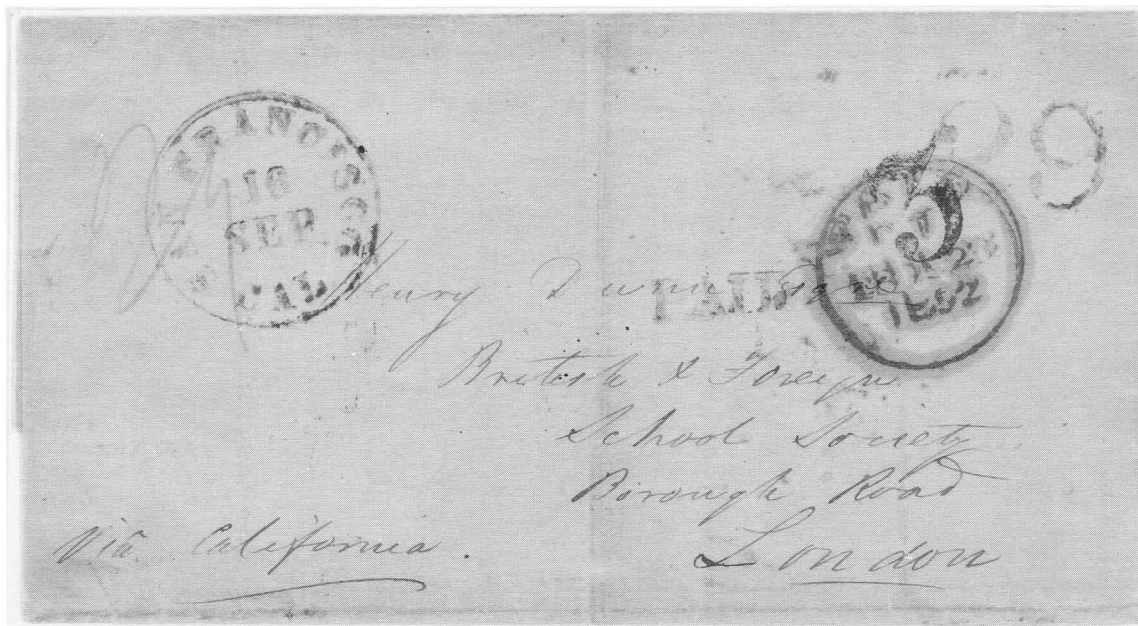 SAN FRANCISCO
16
SEP
CAL.
PAID
29
1852
Henry Dunn
British & Foreign
School Society
Borough Road
London
Via California.